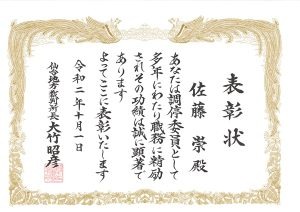 表彰状
佐藤崇殿
あなたは調停委員として
多年にわたり職務に精励
されその功績は誠に顕著で
あります
よってここに表彰いたします
令和二年十月一日
仙台地方裁判所長 大竹昭彦